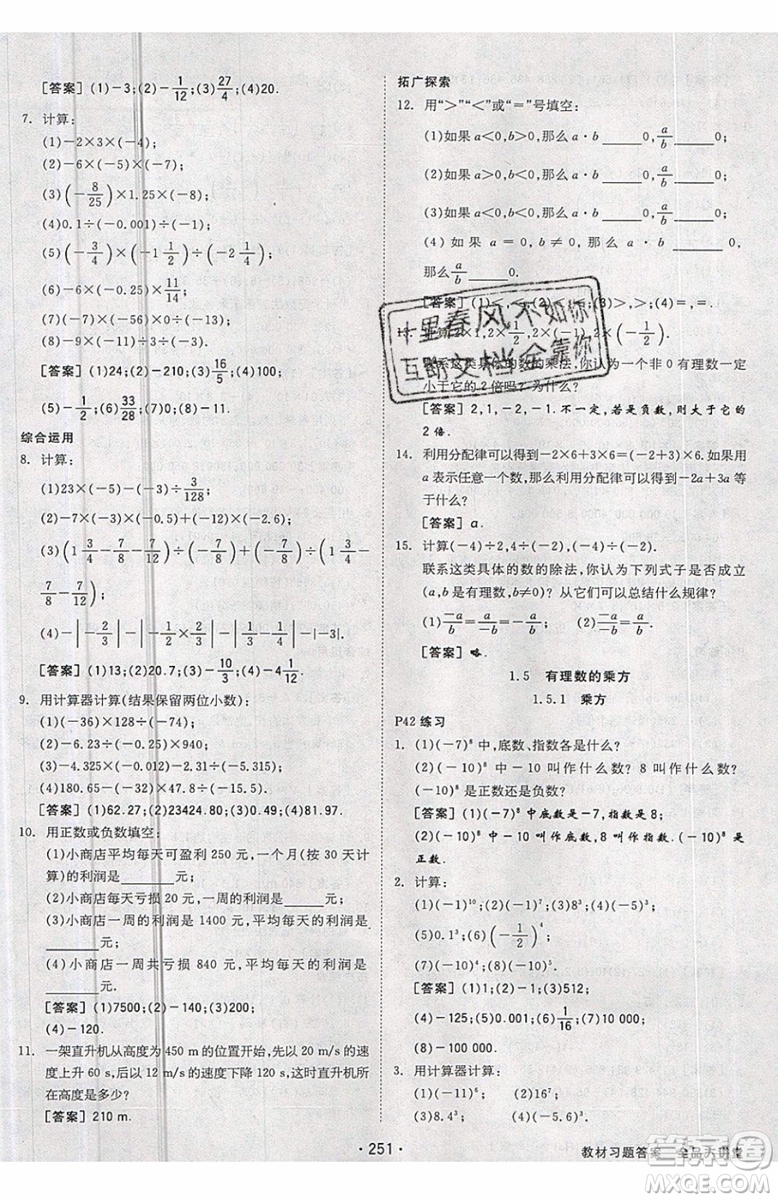 [答案] (1)-3;(2)-1/12;(3)27/4;(4)20.
7. 计算:
(1)-2×3×(-4);
(2)-6×(-5)×(-7);
(3)(-8/25)×1.25×(-8);
(4)0.1÷(-0.001)÷(-1);
(5)(-3/4)×(-1 1/2)÷(-2 1/4);
(6)-6×(-0.25)×11/14;
(7)(-7)×(-56)×0÷(-13);
(8)-9×(-11)÷3÷(-3).
[答案] (1)24;(2)-210;(3)16/5;(4)100;
(5)-1/2;(6)33/28;(7)0;(8)-11.
综合运用
8. 计算:
(1)23×(-5)-(-3)÷3/128;
(2)-7×(-3)×(-0.5)+(-12)×(-2.6);
(3)(1 3/4-7/8-7/12)÷(-7/8)+(-7/8)÷(1 3/4-
7/8-7/12);
(4)-|-2/3|-|-1/2×2/3|-|1/3-1/4|-|-3|.
[答案] (1)13;(2)20.7;(3)-10/3;(4)-4 1/12.
9. 用计算器计算(结果保留两位小数):
(1)(-36)×128÷(-74);
(2)-6.23÷(-0.25)×940;
(3)-4.325×(-0.012)-2.31÷(-5.315);
(4)180.65-(-32)×47.8÷(-15.5).
[答案] (1)62.27;(2)23424.80;(3)0.49;(4)81.97.
10. 用正数或负数填空:
(1)小商店平均每天可盈利 250 元,一个月(按 30 天计
算)的利润是______元;
(2)小商店每天亏损 20 元,一周的利润是______元;
(3)小商店一周的利润是 1400 元,平均每天的利润是
______元;
(4)小商店一周共亏损 840 元,平均每天的利润是
______元.
[答案] (1)7500;(2)-140;(3)200;
(4)-120.
11. 一架直升机从高度为 450 m 的位置开始,先以 20 m/s 的速
度上升 60 s,后以 12 m/s 的速度下降 120 s,这时直升机所
在高度是多少?
[答案] 210 m.
拓广探索
12. 用“>”“<”或“=”号填空:
(1)如果 a<0,b>0,那么 a·b ______0,a/b______0;
(2)如果 a>0,b<0,那么 a·b ______0,a/b______0;
(3)如果 a<0,b<0,那么 a·b ______0,a/b______0;
(4)如果 a=0,b≠0,那么 a·b ______0,
那么a/b______0.
[答案] (1)<,<;(2)<,<;(3)>,>;(4)=,=.
十里春风不如你
互助文档全靠你
联系这类具体的数的乘法,你认为一个非 0 有理数一定
小于它的 2 倍吗?为什么?
[答案] 2,1,-1,-2.不一定,若是负数,则大于它的
2 倍.
14. 利用分配律可以得到-2×6+3×6=(-2+3)×6.如果用
a 表示任意一个数,那么利用分配律可以得到-2a+3a 等
于什么?
[答案] a.
15. 计算(-4)÷2,4÷(-2),(-4)÷(-2).
联系这类具体的数的除法,你认为下列式子是否成立
(a,b 是有理数,b≠0)?从它们可以总结什么规律?
(1)-a/b=a/-b=-a/b;(2)-a/-b=a/b.
[答案] 略.
1.5 有理数的乘方
1.5.1 乘方
P42 练习
1. (1)(-7)⁸ 中,底数、指数各是什么?
(2)(-10)⁸ 中-10 叫作什么数?8 叫作什么数?
(-10)⁸ 是正数还是负数?
[答案] (1)(-7)⁸ 中底数是-7,指数是 8;
(2)(-10)⁸ 中-10 叫作底数,8 叫作指数,(-10)⁸ 是
正数.
2. 计算:
(1)(-1)¹⁰;(2)(-1)⁷;(3)8³;(4)(-5)³;
(5)0.1³;(6)(-1/2)⁴;(7)(-10)⁴;(8)(-10)⁵.
[答案] (1)1;(2)-1;(3)512;
(4)-125;(5)0.001;(6)1/16;(7)10 000;
(8)-100 000.
3. 用计算器计算:
(1)(-11)⁶; (2)16⁷;
(3)8.4³; (4)(-5.6)³.
·251·
教材习题答案 全品大讲堂
答案圈